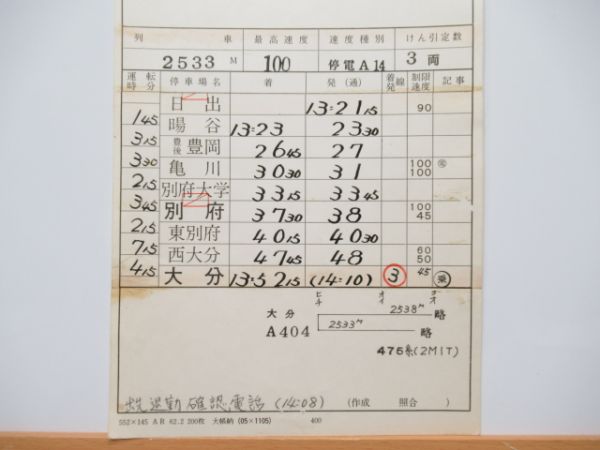 列 車 最高速度 速度種別 けん引定数
2533M 100 停電A14 3両
運転時分 停車場名 着 発(通) 着発線 制限速度 記事
日出 13:21 15 90
1 45
暘谷 13:23 23 30
3 15
豊後豊岡 26 45 27
3 30
亀川 30 30 31 100 100
2 15
別府大学 33 15 33 45
3 45
別府 37 30 38 100 45
2 15
東別府 40 15 40 30
7 15
西大分 47 45 48 60 50
4 15
大分 13:52 15 (14:10) 3 45 乗
ヒチ オイ オオ
大分 2538M 略
A404 2533M 略
475系(2M1T)
退勤確認電話(14:08) (作成 照合 )
552×145 AR 62.2 200枚 大帳納(05×1105) 400